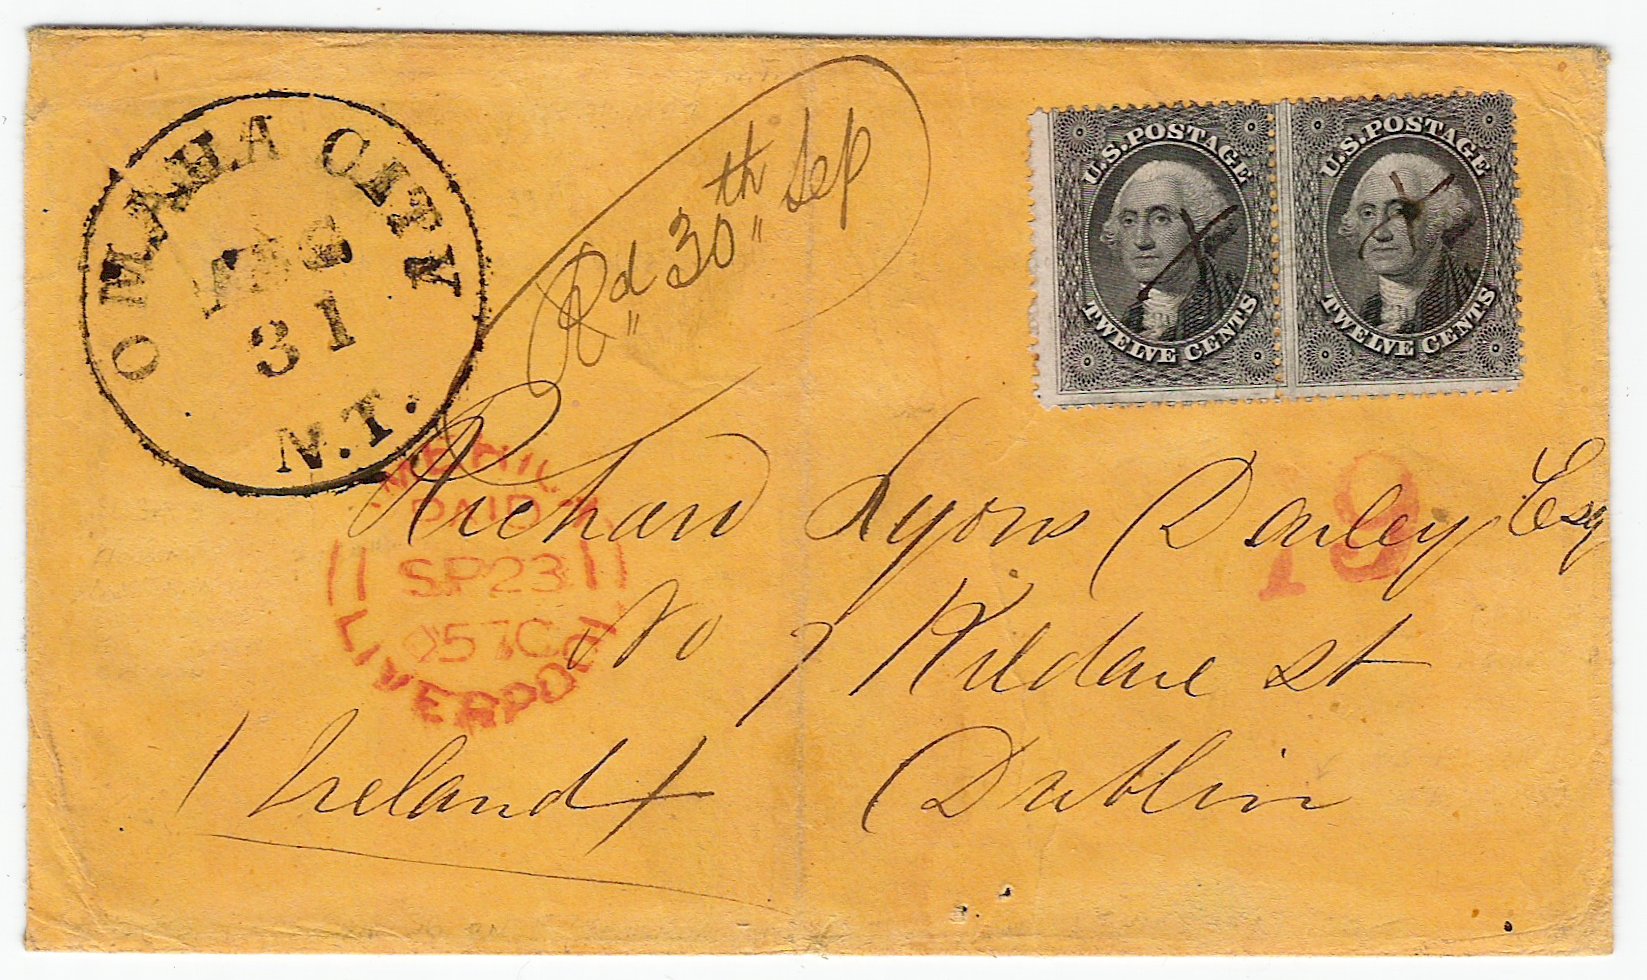 OMAHA CITY
AUG
31
N.T.
Rd 30th Sep
U.S. POSTAGE
TWELVE CENTS
U.S. POSTAGE
TWELVE CENTS
PAID
SP23
LIVERPOOL
19
Richard Lyons Darley Esq
No 7 Kildare St
Dublin
Ireland